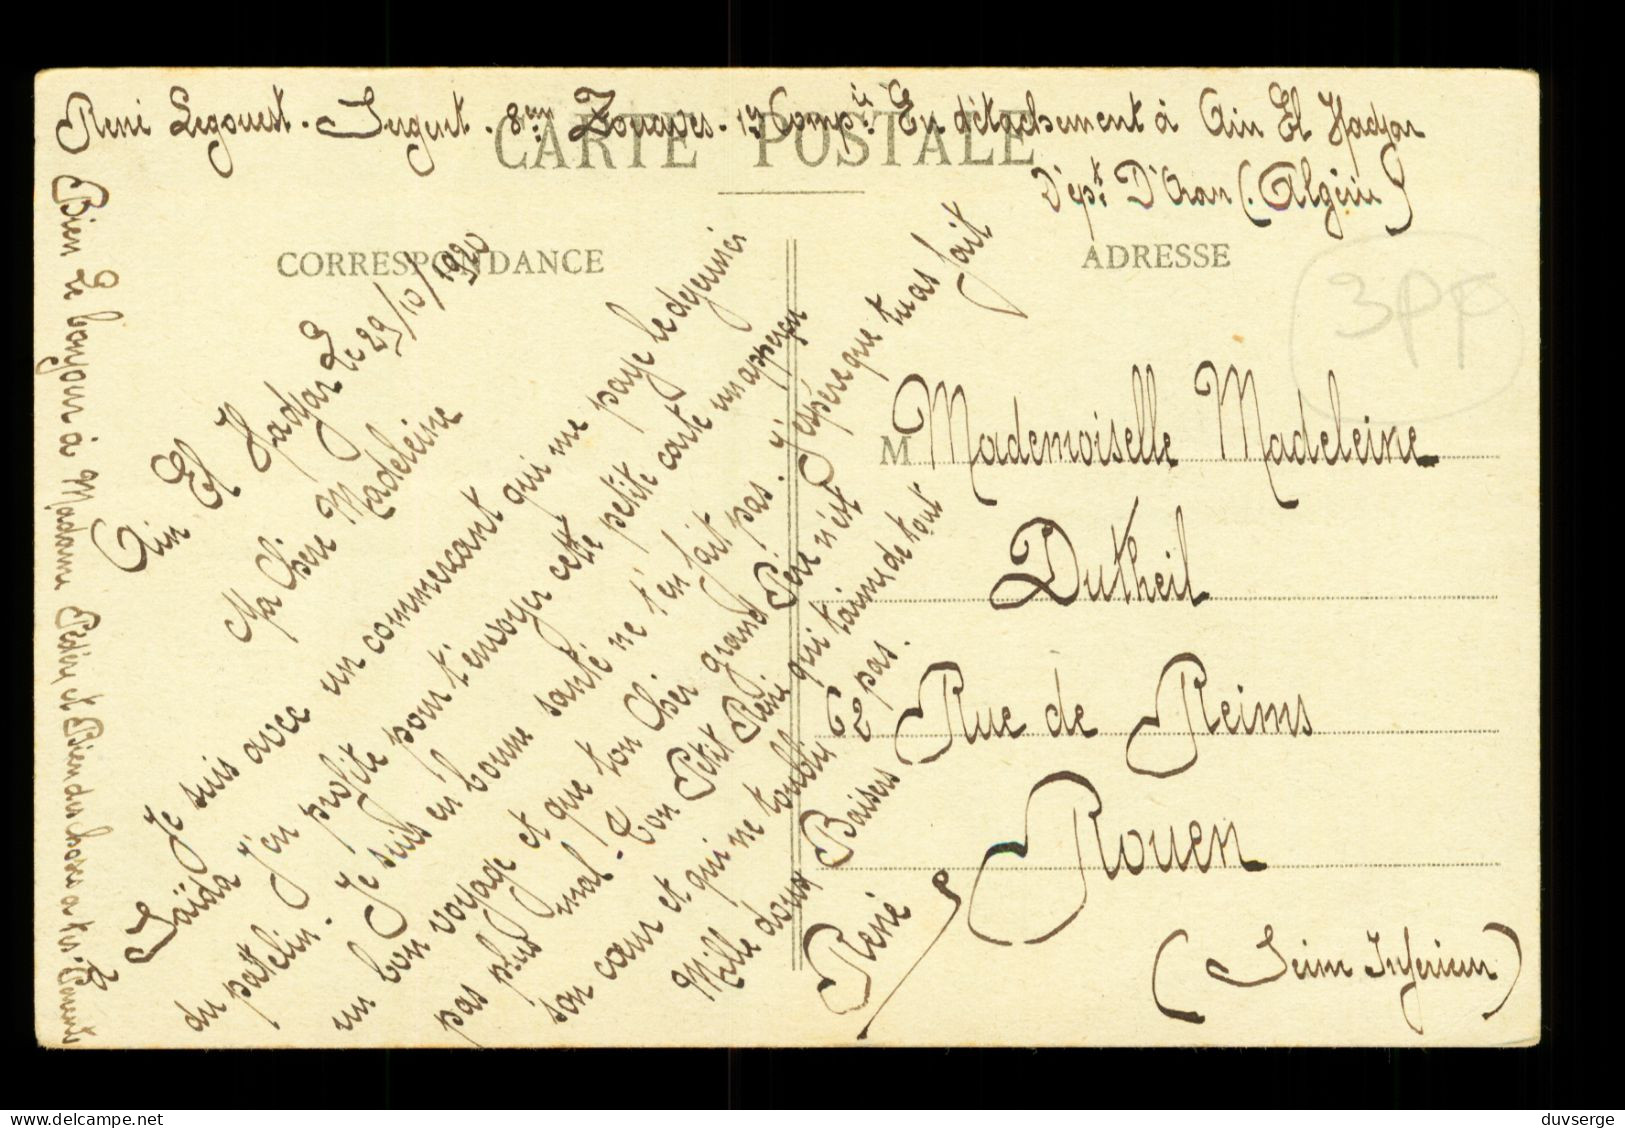 René Legouest. Sergent. 8ème Zouaves. 19 Compie En détachement à Ain El Hadjar
Dépt D'Oran (Algérie)
CARTE POSTALE
CORRESPONDANCE
ADRESSE
3PF
Ain El Hadjar Le 29/10/1920
Ma Chère Madeleine
Je suis avec un commercant qui me paye le dejeuner à
Saïda J'en profite pour t'envoyer cette petite carte un apperçu
du patelin. Je suis en bonne santé ne t'en fait pas. J'espère que tu as fait
un bon voyage et que ton Cher grand Père n'est
pas plus mal. Ton Petit René qui t'aime de tout
son cœur et qui ne t'oublie pas.
Mille doux Baisers
René
Bien le bonjour à Madame et Bien des choses a tes Parents
M Mademoiselle Madeleine
Dutheil
62 Rue de Reims
Rouen
(Seine Inferieur)
duvserge
https://www.delcampe.net